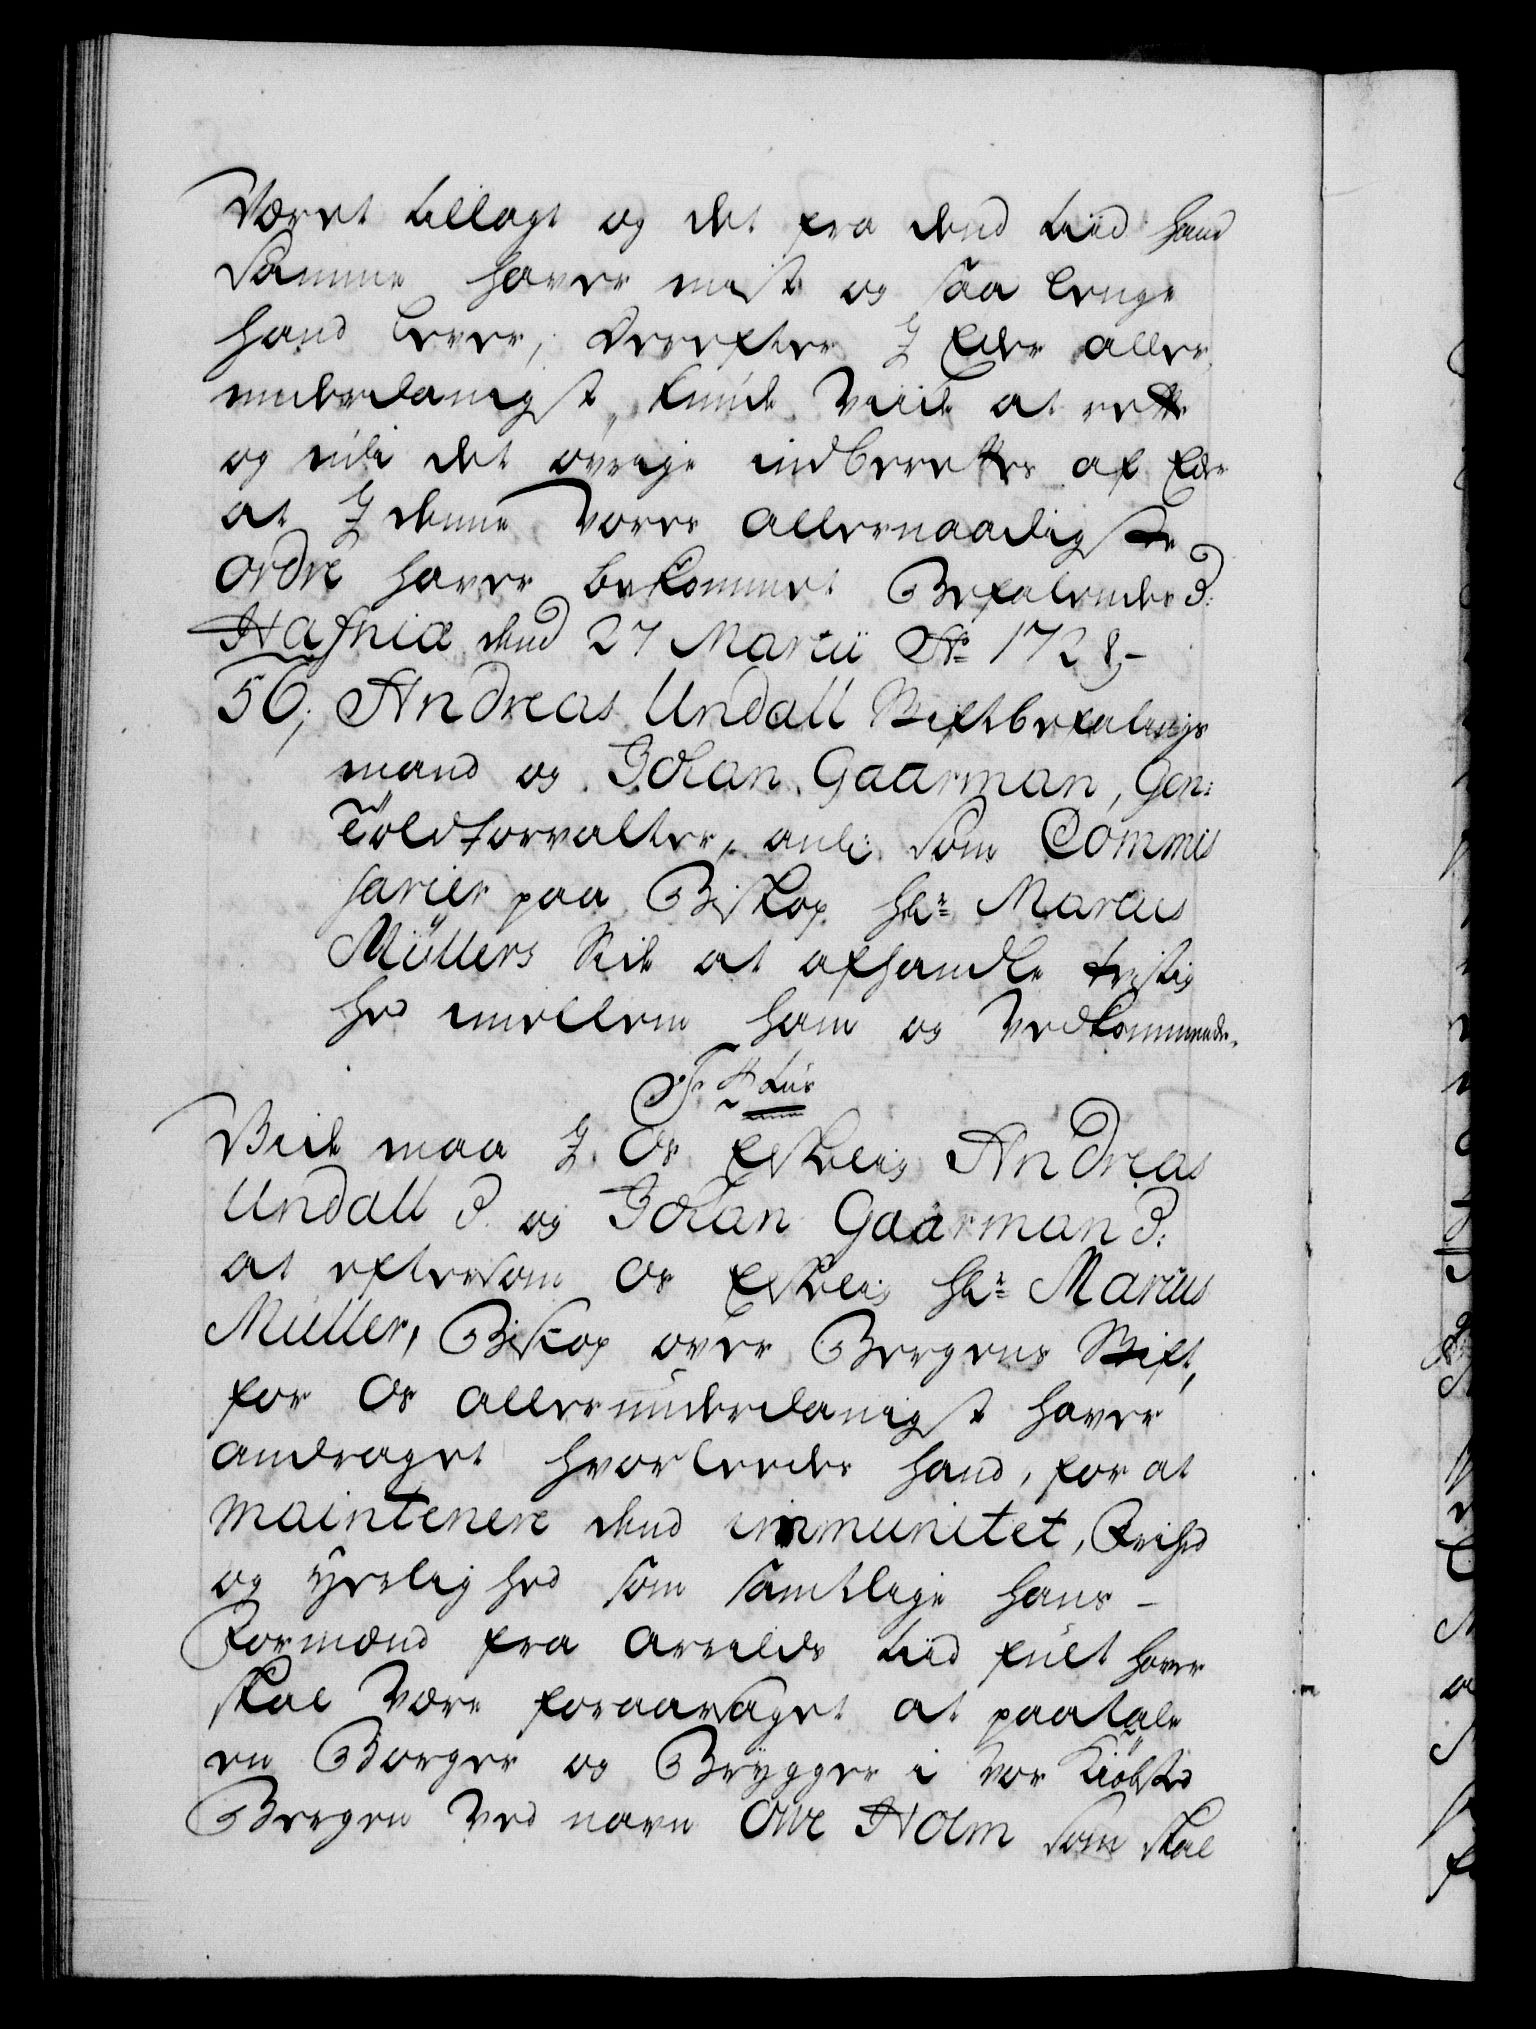 Været tillagt og det fra dend tiid hand
Samme haver mist og saa lenge
hand lever, Derefter I Eder aller-
underdanigst kunde viide at rette
og udi det øvrige indberettes af Eder
at I denne Vores allernaadigste
ordre haver bekommet Befalendes P:
Hafniæ dend 27 Martii Ao 1728,-
56, Andreas Undall Stiftbefalings
mand og Johan Gaarman, Gen:
Toldforvalter, anl: Som Commis
sarier paa Biskop Hr. Marcus
Müllers Side at afhandle tristig
hed imellem ham og Vedkommende.
F 4 tus
Viide maa I, Os Elskelig Andreas
Undall P. og Johan Gaarman P:
at eftersom Os Elskelig Hr. Marcus
Müller, Biskop over Bergens Stift,
for Os allerunderdanigst haver
andraget hvorleedes hand, for at
maintenere dend immunitet, Frihed
og Herlighed som samtlige hans -
Formænd fra Arrilds tiid fult haver
skal Være foraarsaget at paatale
en Borger og Brygger i vor Kiøbsted
Bergen Ved navn Ove Holm som skal